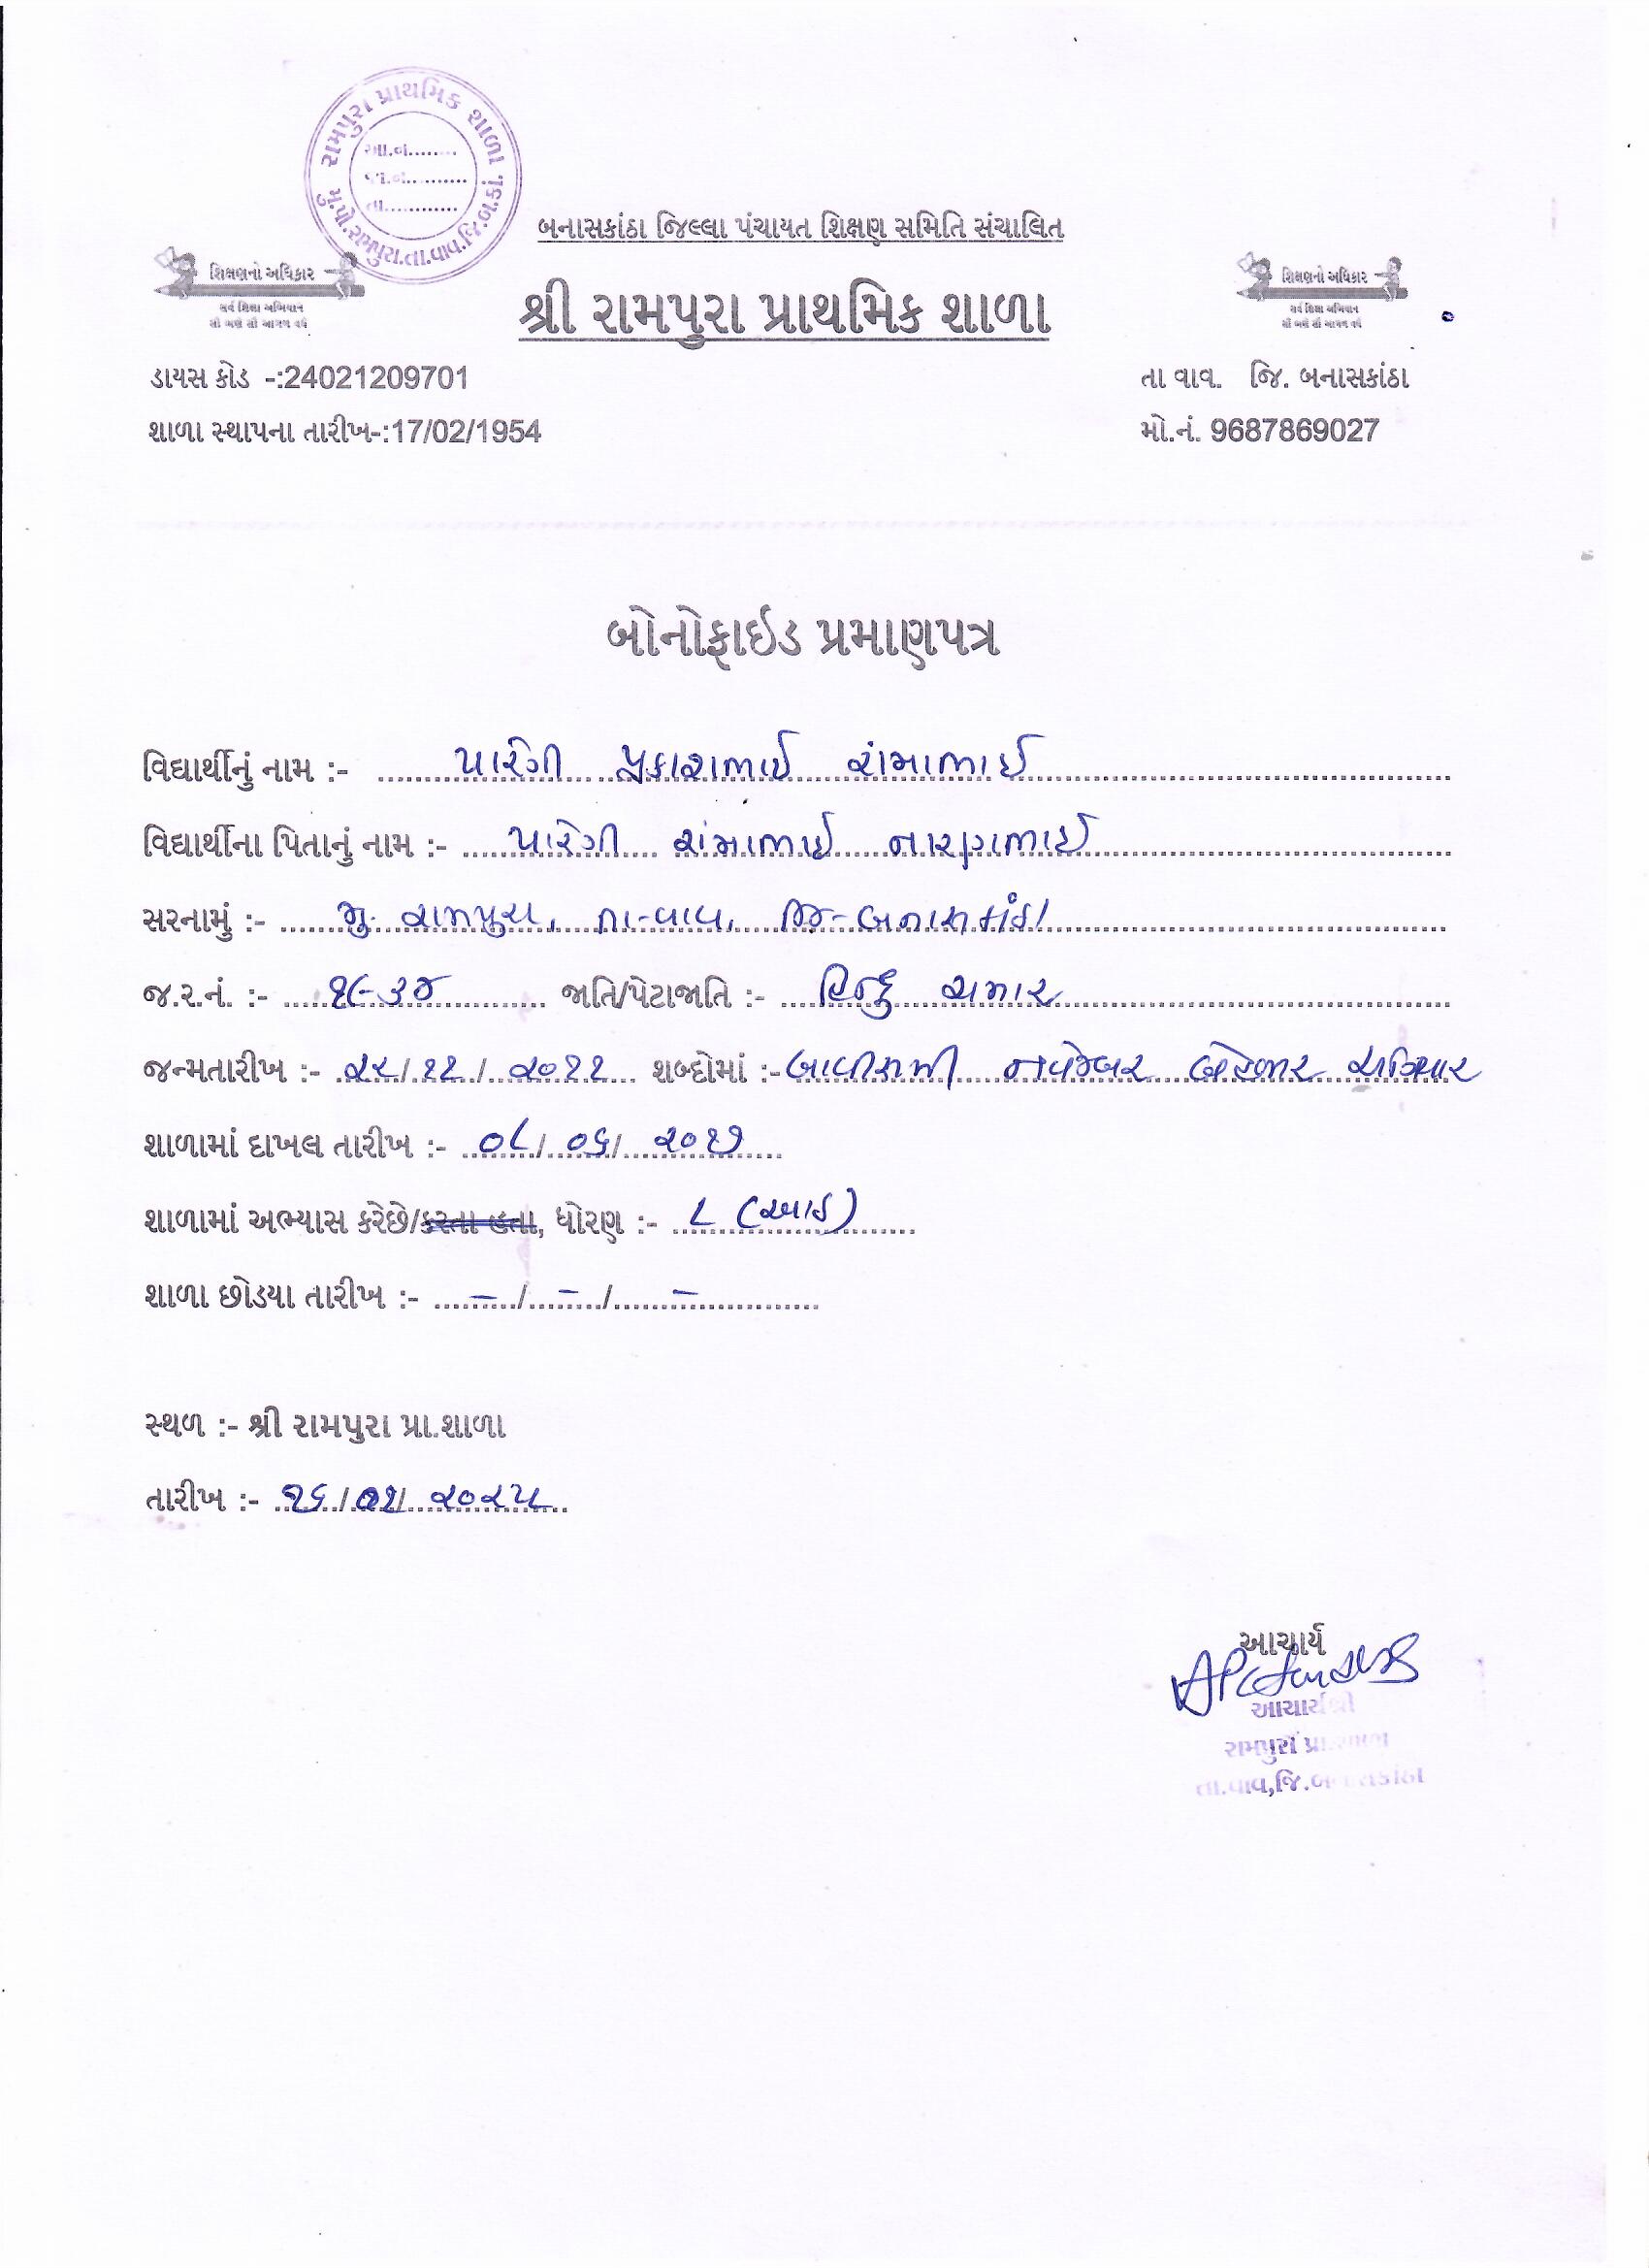 રામપુરા પ્રાથમિક શાળા
મું.પો.રામપુરા.તા.વાવ.જિ.બ.કાં.
આ.નં........
જા.નં..........
તા............
બનાસકાંઠા જિલ્લા પંચાયત શિક્ષણ સમિતિ સંચાલિત
શિક્ષણનો અધિકાર
સર્વ શિક્ષા અભિયાન
સૌ ભણે સૌ આગળ વધે
શ્રી રામપુરા પ્રાથમિક શાળા
શિક્ષણનો અધિકાર
સર્વ શિક્ષા અભિયાન
સૌ ભણે સૌ આગળ વધે
ડાયસ કોડ -:24021209701 તા વાવ. જિ. બનાસકાંઠા
શાળા સ્થાપના તારીખ-:17/02/1954 મો.નં. 9687869027
બોનોફાઇડ પ્રમાણપત્ર
વિદ્યાર્થીનું નામ :- પારેગી પ્રકાશભાઈ રાંમાભાઈ
વિદ્યાર્થીના પિતાનું નામ :- પારેગી રાંમાભાઈ નારણભાઈ
સરનામું :- મુ. રામપુરા, તા-વાવ, જિ-બનાસકાંઠા
જ.ર.નં. :- ૧૯૩૪ જાતિ/પેટાજાતિ :- હિન્દુ ચમાર
જન્મતારીખ :- ૨૨/૧૧/૨૦૧૧ શબ્દોમાં :- બાવીસમી નવેમ્બર બેહજાર અગિયાર
શાળામાં દાખલ તારીખ :- ૦૮/૦૬/૨૦૧૭
શાળામાં અભ્યાસ કરેછે/કરતા હતા, ધોરણ :- ૮ (આઠ)
શાળા છોડયા તારીખ :- - / - / -
સ્થળ :- શ્રી રામપુરા પ્રા.શાળા
તારીખ :- ૧૬/૦૧/૨૦૨૫
આચાર્ય
આચાર્યશ્રી
રામપુરા પ્રા.શાળા
તા.વાવ,જિ.બનાસકાંઠા